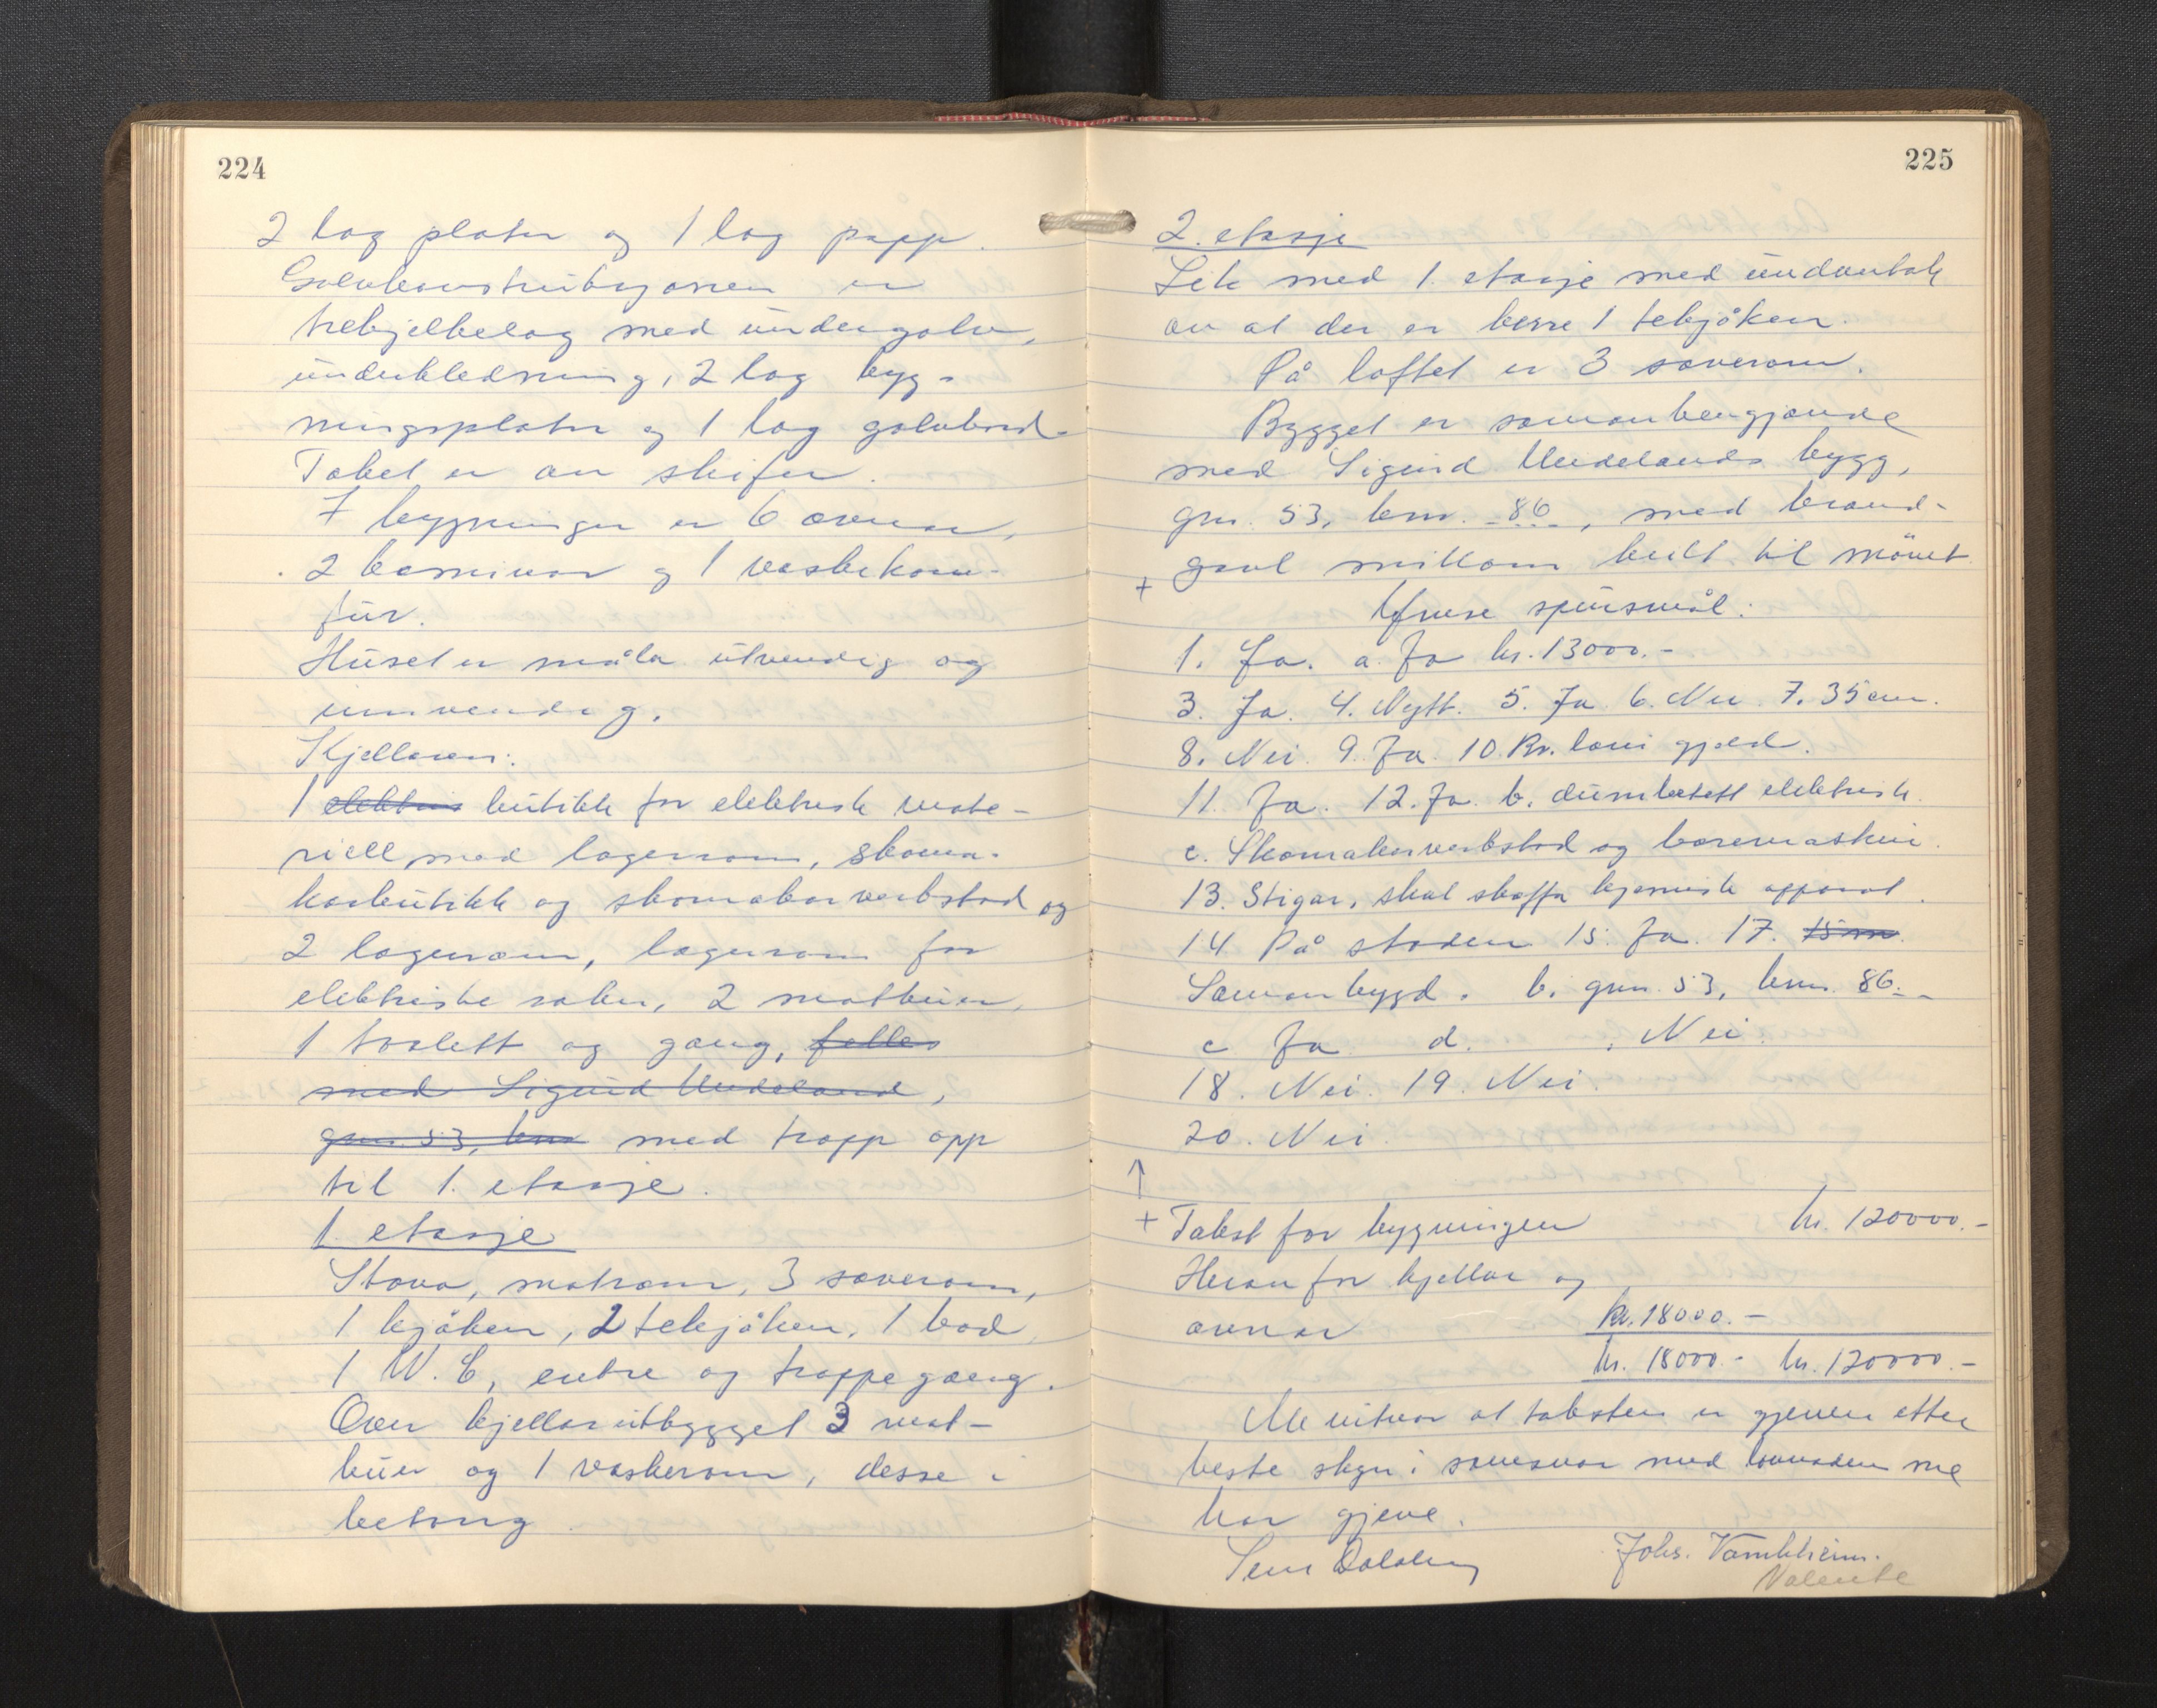 224
2 lag plater og 1 lag papp.
Golvkonstruksjonen er
trebjelkelag med undergolv,
underkledning, 2 lag byg-
ningsplater og 1 lag golvbord.
Taket er av skifer.
I bygningen er 6 ovnar,
2 kaminar og 1 vaskekom-
fur.
Huset er måla utvendig og
innvendig.
Kjellaren:
1 elektris butikk for elektrisk mate-
riell med lagerrom, skoma-
karbutikk og skomakarverkstad og
2 lagerrom, lagerrom for
elektriske saker, 2 matbuer,
1 toalett og gang, felles
med Sigurd Undeland,
gnr. 53, bnr med trapp opp
til 1. etasje.
1. etasje
Stova, matrom, 3 soverom,
1 kjöken, 2 tekjöken, 1 bod,
1 W.C, entre og trappegang.
Over kjellarutbygget 3 mat-
buer og 1 vaskerom, desse i
betong.
225
2. etasje
Lik med 1. etasje med undantak
av at der er berre 1 tekjöken.
På loftet er 3 soverom.
Bygget er samanhengjande
med Sigurd Undelands bygg,
gnr. 53, bnr. 86, med brand-
gavl millom heilt til mönet.
+
Ymse spursmål:
1. Ja. a. Ja kr. 13000.-
3. Ja. 4. Nytt. 5. Ja 6. Nei. 7. 35 cm.
8. Nei. 9. Ja. 10. Kr. lovi gjeld.
11. Ja. 12. Ja. b. elektrisk.
c. Skomakarverkstad og boremaskin.
13. Stigar, skal skaffa kjemisk apparat.
14 På staden 15. Ja. 17. 15 m.
Samanbygd. b. gnr. 53, bnr. 86.-
c Ja d. . Nei.
18. Nei. 19. Nei.
20. Nei.
↑
+ Takst for bygningen kr. 120000.-
Herav for kjellar og
ovnar kr. 18000.-
kr. 18000.- kr. 120000.-
Me vitnar at taksten er gjeven etter
beste skyn i samsvar med lovnaden me
har gjeve.
Johs.